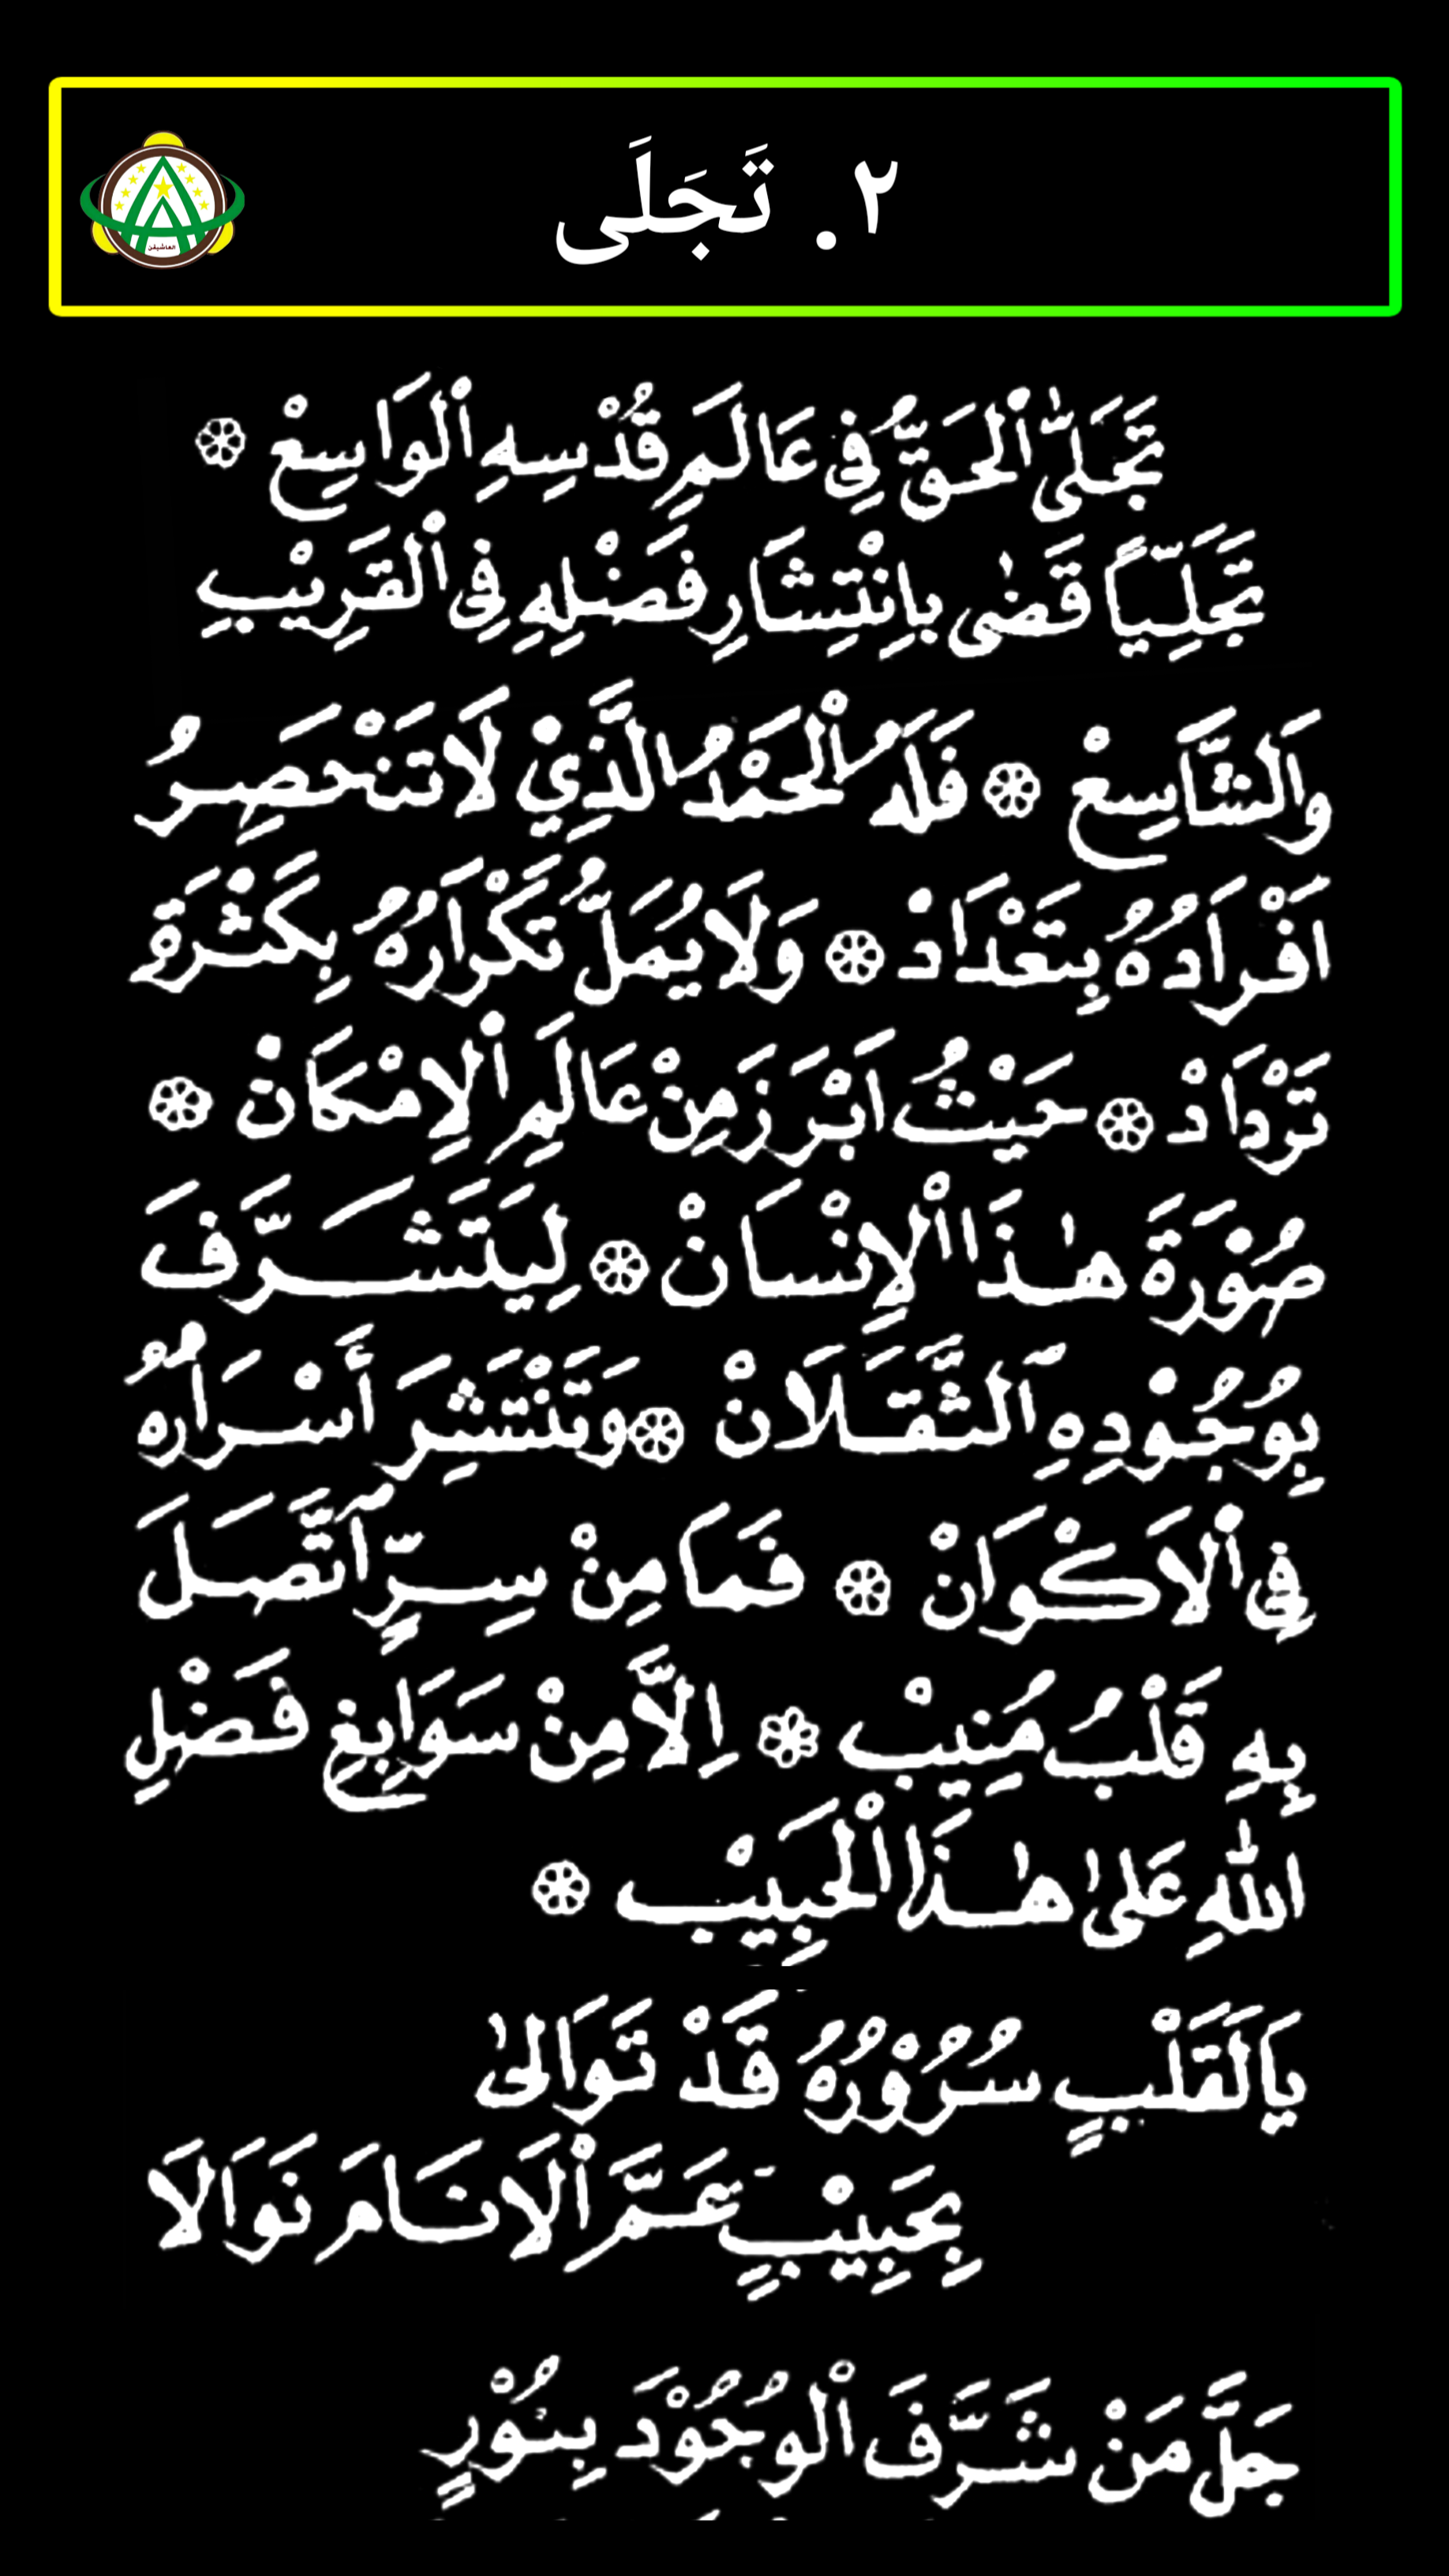 ٢. تَجَلَى
العاشيقن
تَجَلَّى ٱلْحَقُّ فِي عَالَمِ قُدْسِهِ ٱلْوَاسِعْ ۞
تَجَلِّيًا قَضٰى بِانْتِشَارِ فَضْلِهِ فِى ٱلْقَرِيْبِ
وَالشَّاسِعْ ۞ فَلَهُ ٱلْحَمْدُ الَّذِيْ لَا تَنْحَصِرُ
اَفْرَادُهُ بِتَعْدَادْ ۞ وَلَا يُمَلُّ تَكْرَارُهُ بِكَثْرَةِ
تَرْدَادْ ۞ حَيْثُ اَبْرَزَ مِنْ عَالَمِ ٱلْاِمْكَانْ ۞
صُوْرَةَ هٰذَا ٱلْاِنْسَانْ ۞ لِيَتَشَرَّفَ
بِوُجُوْدِهِ ٱلثَّقَلَانْ ۞ وَتَنْتَشِرَ أَسْرَارُهُ
فِى ٱلْاَكْوَانْ ۞ فَمَا مِنْ سِرٍّ ٱتَّصَلَ
بِهِ قَلْبُ مُنِيْبْ ۞ اِلَّا مِنْ سَوَابِغِ فَضْلِ
اللّٰهِ عَلىٰ هٰذَا ٱلْحَبِيْبْ ۞
يَا لَقَلْبٍ سُرُوْرُهُ قَدْ تَوَالىٰ
بِحَبِيْبٍ عَمَّ ٱلْاَنَامَ نَوَالَا
جَلَّ مَنْ شَرَّفَ ٱلْوُجُوْدَ بِنُوْرٍ